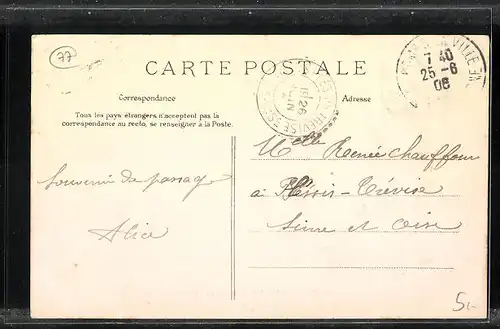 77
CARTE POSTALE
Correspondance
Adresse
Tous les pays étrangers n'acceptent pas la
correspondance au recto, se renseigner à la Poste.
7 40
25 - 6
08
26
JUIN
Melle Renée Chauffour
à Plessis-Trévise
Seine et Oise
Souvenir de passage
Alice
5,-